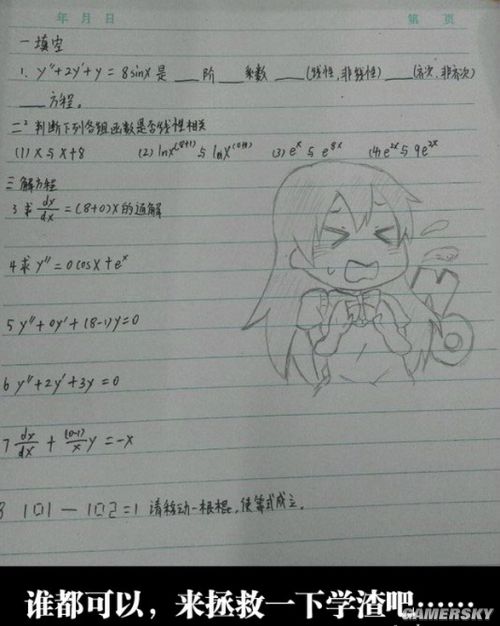 年 月 日 第 页
一 填空
1. y″+2y′+y = 8sinx 是 ___ 阶 ___ 系数 ___ (线性,非线性) ___ (齐次,非齐次)
___ 方程。
二² 判断下列各组函数是否线性相关
(1) x与x+8 (2) lnx^(8+1)与lnx^(0+1) (3) e^x与e^8x (4) e^2x与9e^2x
三 解方程
3 求 dy/dx = (8+0)x 的通解
4 求 y″ = 0cosx + e^x
NO
5 y″+0y′+(8-1)y=0
6 y″+2y′+3y=0
7 dy/dx + (0-1)/x y = -x
8 101 — 102 = 1 请移动一根棍,使等式成立.
谁都可以,来拯救一下学渣吧……
GAMERSKY